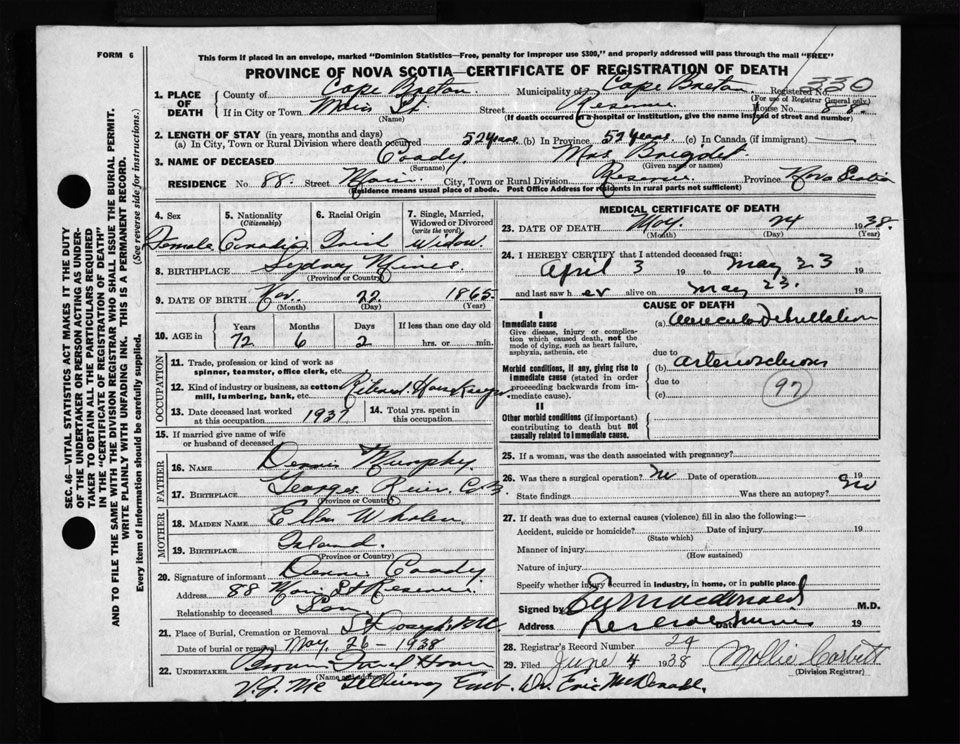 FORM 6
This form if placed in an envelope, marked "Dominion Statistics—Free, penalty for improper use $300," and properly addressed will pass through the mail "FREE"
PROVINCE OF NOVA SCOTIA—CERTIFICATE OF REGISTRATION OF DEATH
330
1. PLACE OF DEATH County of Cape Breton Municipality of Cape Breton Registered No.
(For use of Registrar General only)
If in City or Town Main St. Street Reserve House No. 88.
(Name) (If death occurred in a hospital or institution, give the name instead of street and number)
2. LENGTH OF STAY (in years, months and days)
(a) In City, Town or Rural Division where death occurred 52 years (b) In Province 52 years (c) In Canada (if immigrant) —
3. NAME OF DECEASED Coady. Mrs. Bridget
(Surname) (Given name or names)
RESIDENCE No 88. Street Main City, Town or Rural Division Reserve Province Nova Scotia
(Residence means usual place of abode. Post Office Address for residents in rural parts not sufficient)
SEC. 46—VITAL STATISTICS ACT MAKES IT THE DUTY
OF THE UNDERTAKER OR PERSON ACTING AS UNDER-
TAKER TO OBTAIN ALL THE PARTICULARS REQUIRED
IN THE "CERTIFICATE OF REGISTRATION OF DEATH"
AND TO FILE THE SAME WITH THE DIVISION REGISTRAR WHO SHALL ISSUE THE BURIAL PERMIT.
WRITE PLAINLY WITH UNFADING INK. THIS IS A PERMANENT RECORD.
Every item of information should be carefully supplied. (See reverse side for instructions.)
4. Sex 5. Nationality (Citizenship) 6. Racial Origin 7. Single, Married, Widowed or Divorced (write the word)
Female Widow
8. BIRTHPLACE Sydney Mines
(Province or Country)
9. DATE OF BIRTH Nov. 22 1865
(Month) (Day) (Year)
10. AGE IN Years Months Days If less than one day old
72 6 2 hrs. or min.
OCCUPATION
11. Trade, profession or kind of work as spinner, teamster, office clerk, etc.
12. Kind of industry or business, as cotton mill, lumbering, bank, etc. Retired Housekeeper
13. Date deceased last worked at this occupation 1937 14. Total yrs. spent in this occupation
15. If married give name of wife or husband of deceased
FATHER
16. NAME Dennis Murphy.
17. BIRTHPLACE Georges River C.B.
(Province or Country)
MOTHER
18. MAIDEN NAME Ellen Whalen
19. BIRTHPLACE
(Province or Country)
20. Signature of informant Dennis Coady
Address 88 Main St Reserve
Relationship to deceased Son
21. Place of Burial, Cremation or Removal St Josephs
Date of burial or removal May 26 - 1938
22. UNDERTAKER
(Name and address)
V.J. Mc Emb. Dr. Eric McDonald.
MEDICAL CERTIFICATE OF DEATH
23. DATE OF DEATH May. 24 1938.
(Month) (Day) (Year)
24. I HEREBY CERTIFY that I attended deceased from:
April 3 19 to May 23 19
and last saw her alive on May 23. 19
CAUSE OF DEATH
I
Immediate cause (a)
Give disease, injury or complication which caused death, not the mode of dying, such as heart failure, asphyxia, asthenia, etc
due to
Morbid conditions, if any, giving rise to immediate cause (stated in order proceeding backwards from immediate cause). (b) arteriosclerosis
due to
(c) 97
II
Other morbid conditions (if important) contributing to death but not causally related to immediate cause.
25. If a woman, was the death associated with pregnancy?
26. Was there a surgical operation? No Date of operation 19
State findings Was there an autopsy? No
27. If death was due to external causes (violence) fill in also the following:—
Accident, suicide or homicide? Date of injury 19
(State which)
Manner of injury
(How sustained)
Nature of injury
Specify whether injury occurred in industry, in home, or in public place
Signed by Macdonald M.D.
Address Reserve Mines Date 19
28. Registrar's Record Number 24
29. Filed June 4 1938 Mollie Corbett
(Division Registrar)